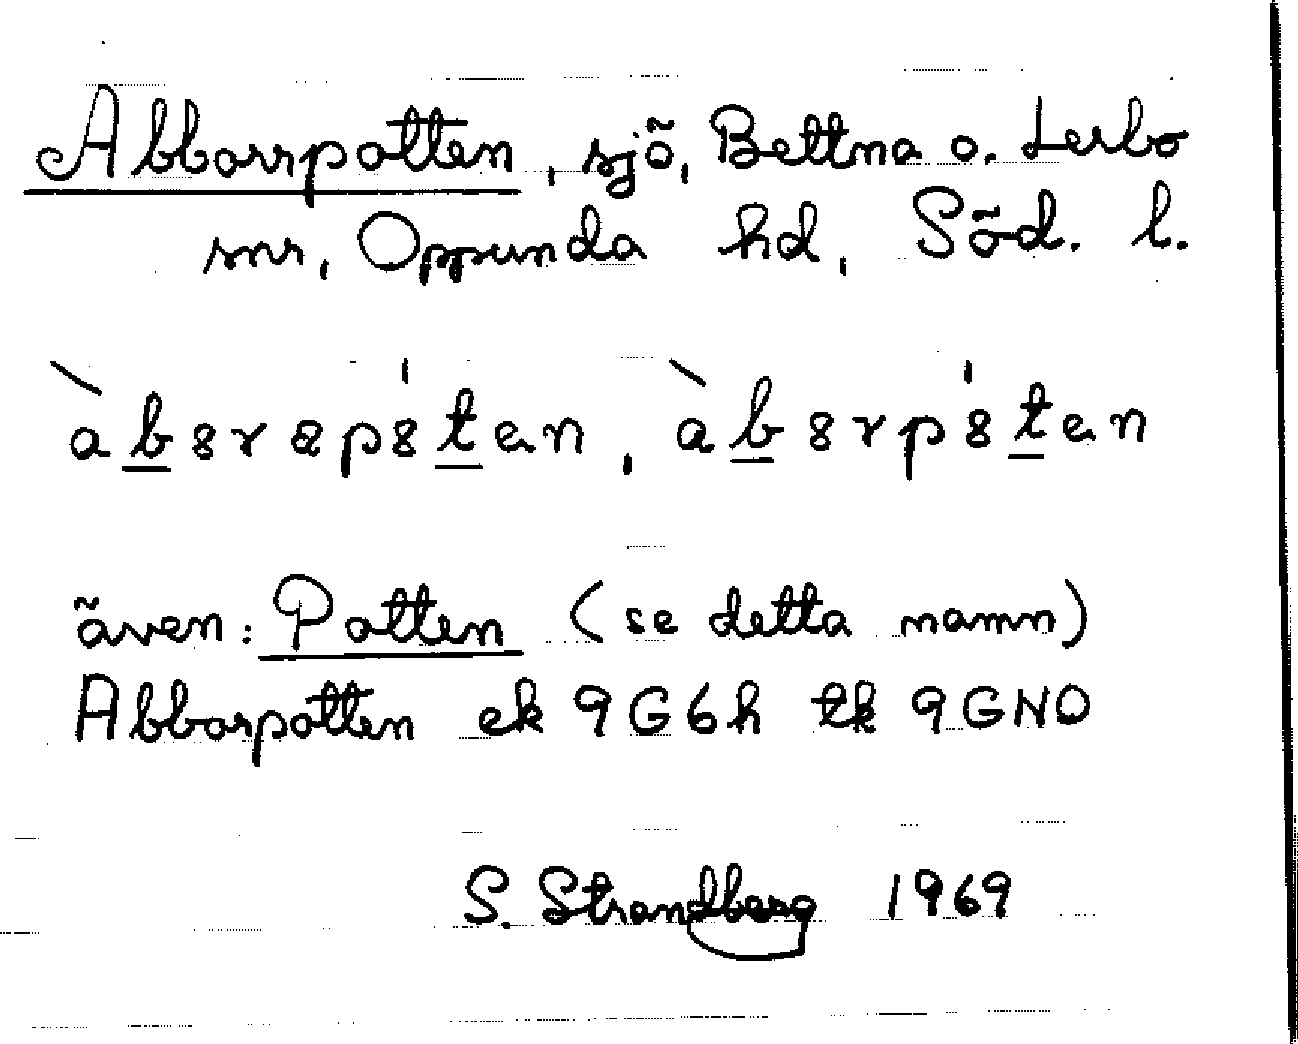 Abborrpotten, sjö, Bettna o. Lerbo
snr, Oppunda hd, Söd. l.
även: Potten (se detta namn)
Abborpotten ek 9G6h tk 9GNO
S. Strandberg 1969